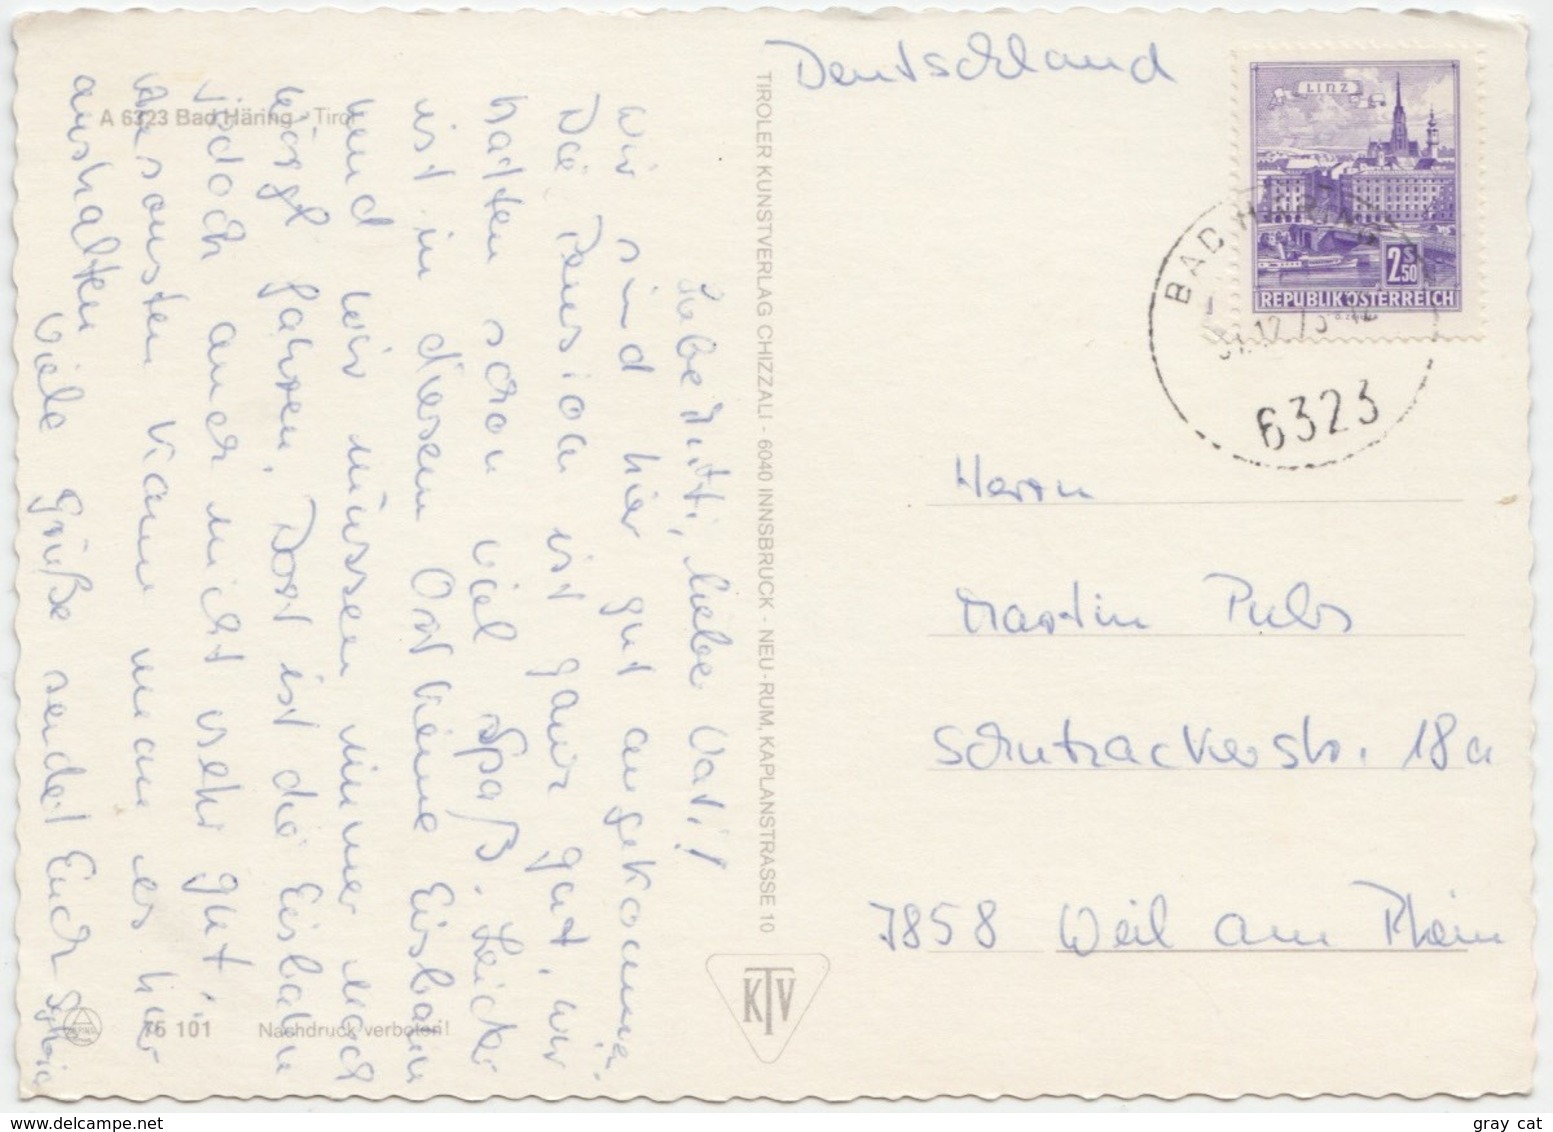 Deutschland
LINZ
2S50
REPUBLIK ÖSTERREICH
BAD HÄRING
6323
A 6323 Bad Häring - Tirol
Liebe Mutti, lieber Vati!
Wir sind hier gut angekommen.
Die Pension ist ganz gut, wir
hatten schon viel Spaß. Leider
ist in diesem Ort keine Eisbahn
und wir müssen immer nach
Wörgl fahren. Dort ist die Eisbahn
jedoch auch nicht sehr gut.
Ansonsten kann man es hier
aushalten
Viele Grüße sendet Euch Sylvia
TIROLER KUNSTVERLAG CHIZZALI - 6040 INNSBRUCK - NEU-RUM, KAPLANSTRASSE 10
KTV
76 101
Nachdruck verboten!
Herrn
Martin Puls
Schutzackerstr. 18a
7858 Weil am Rhein
gray cat